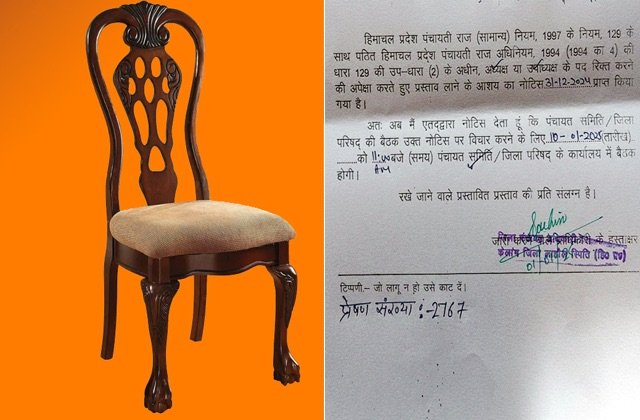 हिमाचल प्रदेश पंचायती राज (सामान्य) नियम, 1997 के नियम, 129 के
साथ पठित हिमाचल प्रदेश पंचायती राज अधिनियम, 1994 (1994 का 4) की
धारा 129 की उप–धारा (2) के अधीन, अध्यक्ष या उपाध्यक्ष के पद रिक्त करने
की अपेक्षा करते हुए प्रस्ताव लाने के आशय का नोटिस 31-12-2024 प्राप्त किया
गया है।
अतः अब मैं एतद्द्वारा नोटिस देता हूं कि पंचायत समिति/जिला
परिषद् की बैठक उक्त नोटिस पर विचार करने के लिए 10-01-2025 (तारीख)
..........को 11:00 बजे (समय) पंचायत समिति/जिला परिषद् के कार्यालय में बैठक
AM
होगी।
रखे जाने वाले प्रस्तावित प्रस्ताव की प्रति संलग्न है।
जारी करने वाले के हस्ताक्षर
जिला
केलांग जिला लाहौल स्पिति (हि० प्र०)
टिप्पणी:– जो लागू न हो उसे काट दें।
प्रेषण संख्या :-2767